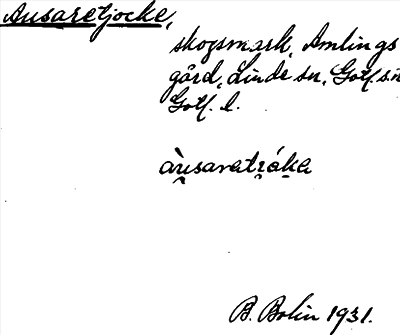 Ausaretjocke,
skogsmark, Amlings
gård, Linde sn, Gotl. s. hd
Gotl. l.
àu̯saratʀ̥ák̥a
B. Bolin 1931.